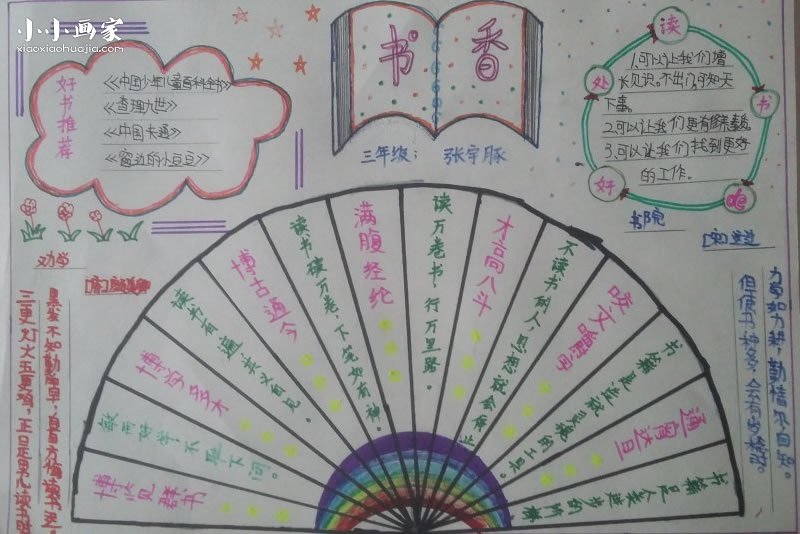 小小画家
xiaoxiaohuajia.com
好书推荐
《中国少年儿童百科全书》
《查理九世》
《中国卡通》
《窗边的小豆豆》
书香
三年级：张宇豚
读书的好处
1.可以让我们增
长见识。不出门，可知天
下事。
2.可以让我们更有修养。
3.可以让我们找到更好
的工作。
劝学
三更灯火五更鸡，正是男儿读书时
黑发不知勤学早，白首方悔读书迟。
书院
力学如力耕，勤惰尔自知。
但使书种多，会有岁稔时。
博览群书
敏而好学，不耻下问。
博学多才
读书百遍，其义自见。
博古通今
读书破万卷，下笔如有神。
满腹经纶
读万卷书，行万里路。
才高八斗
不读书的人，思想就会停止
咬文嚼字
书籍是造就灵魂的工具。
通宵达旦
书籍是人类进步的阶梯